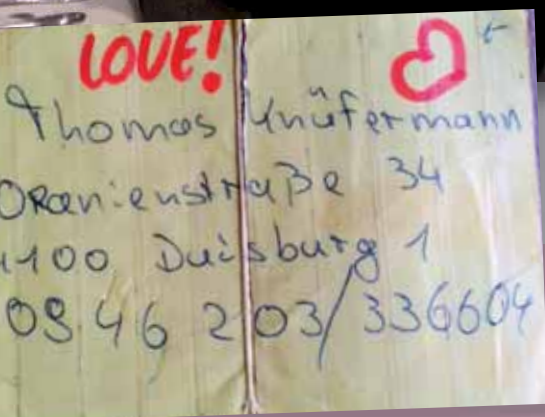 LOVE!
Thomas Knüfermann
Oranienstraße 34
4100 Duisburg 1
0946 203/336604